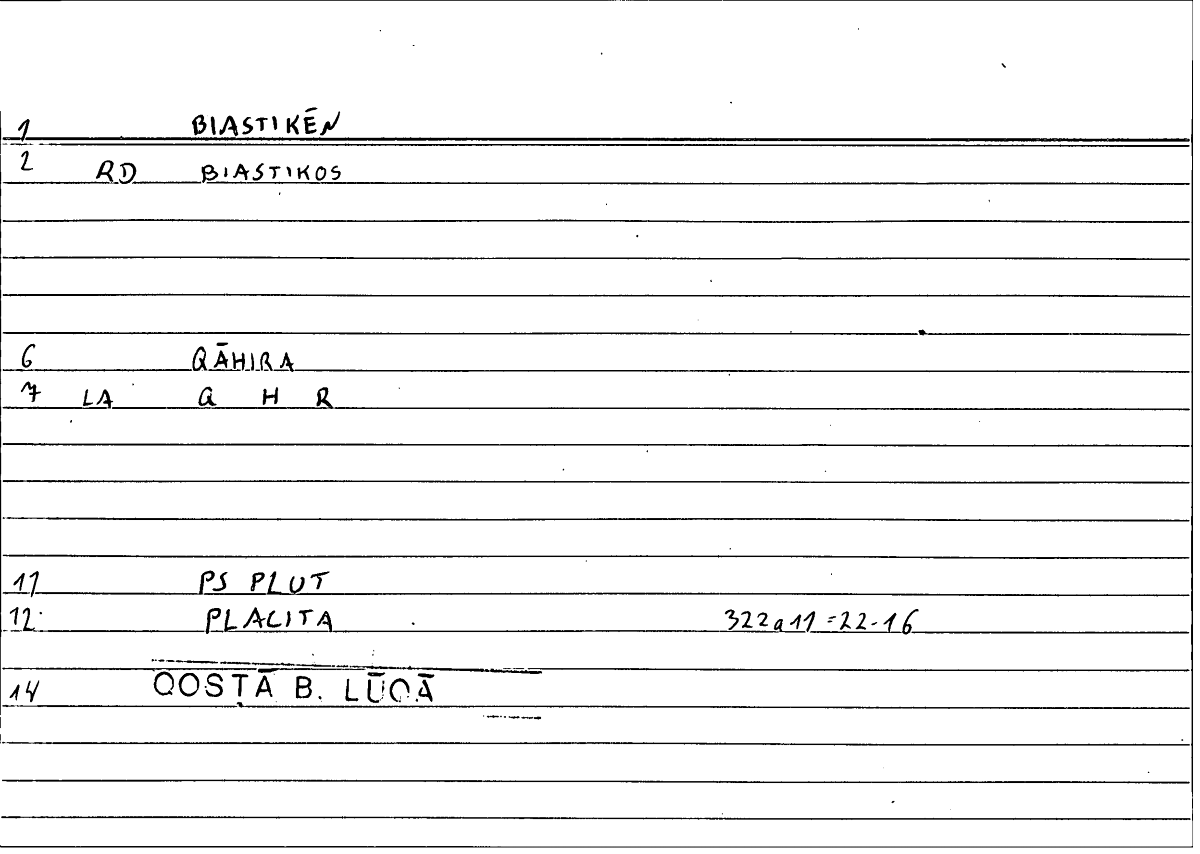 1 BIASTIKĒN
2 RD BIASTIKOS
6 QĀHIRA
7 LA Q H R
11 PS PLUT
12 PLACITA 322a11=22-16
14 QOSṬĀ B. LŪQĀ